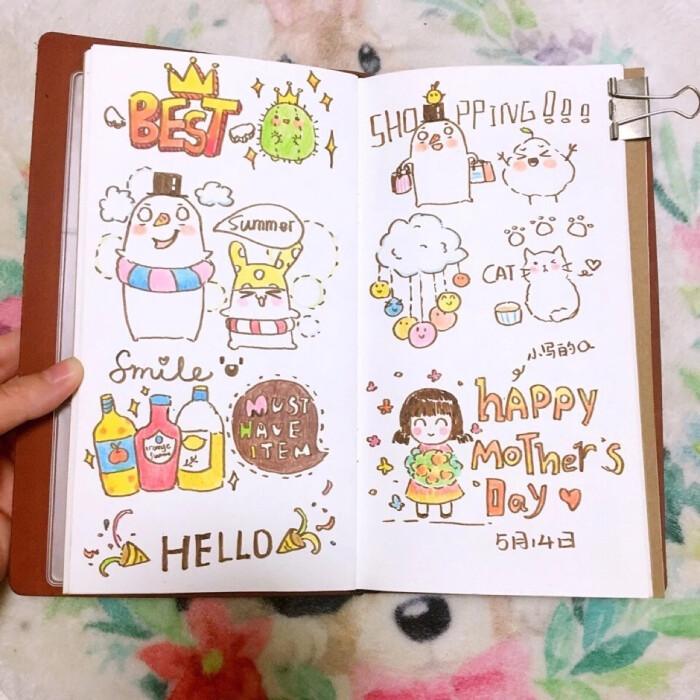 BEST
Summer
Smile
MUST
HAVE
ITEM
orange
HELLO
SHOPPING!!!
CAT
小写的a
hAPPY
MoTher's
Day
5月14日